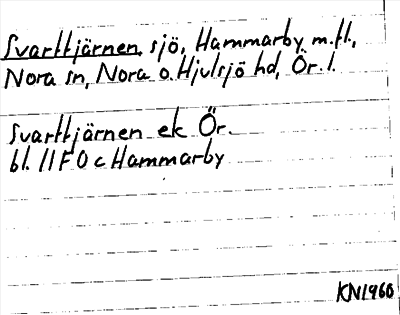 Svarttjärnen, sjö, Hammarby m.fl.,
Nora sn, Nora o. Hjulsjö hd, Ör. l.
Svarttjärnen ek Ör.
bl. 11F0c Hammarby
KN1960